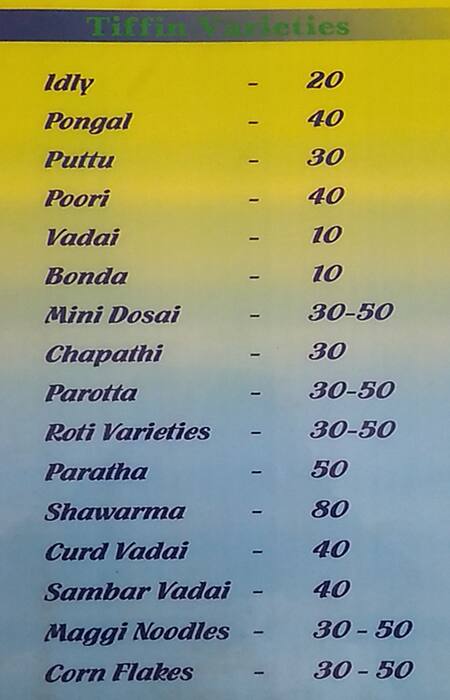 Tiffin Varieties
Idly - 20
Pongal - 40
Puttu - 30
Poori - 40
Vadai - 10
Bonda - 10
Mini Dosai - 30-50
Chapathi - 30
Parotta - 30-50
Roti Varieties - 30-50
Paratha - 50
Shawarma - 80
Curd Vadai - 40
Sambar Vadai - 40
Maggi Noodles - 30 - 50
Corn Flakes - 30 - 50